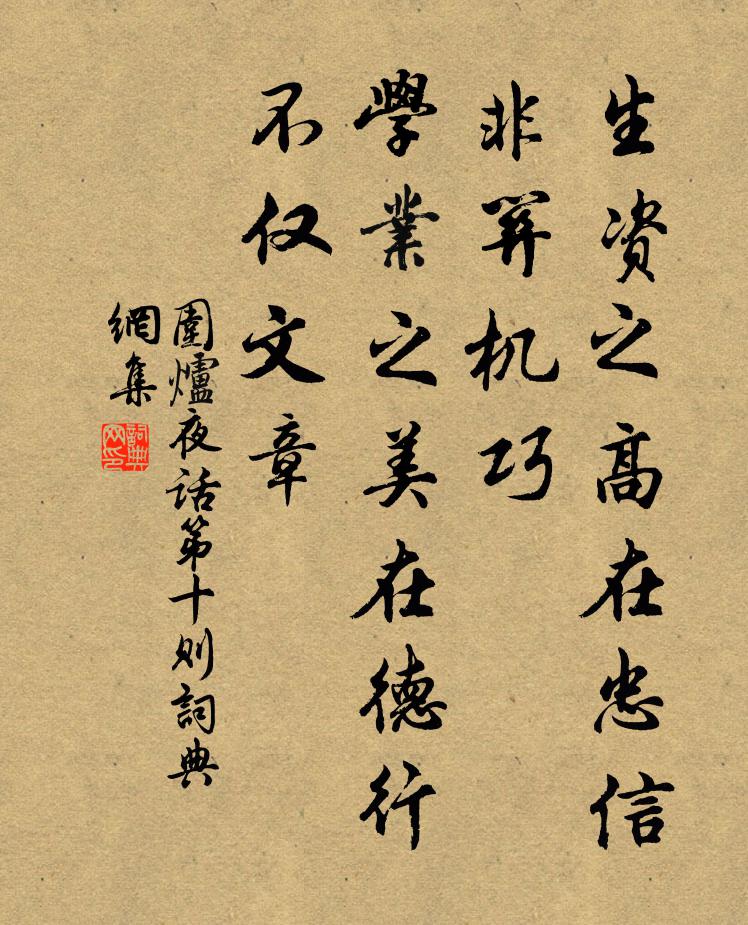 生资之高在忠信
非關机巧
學業之美在德行
不仅文章
圍爐夜话第十则詞典
網集
詞典
网印